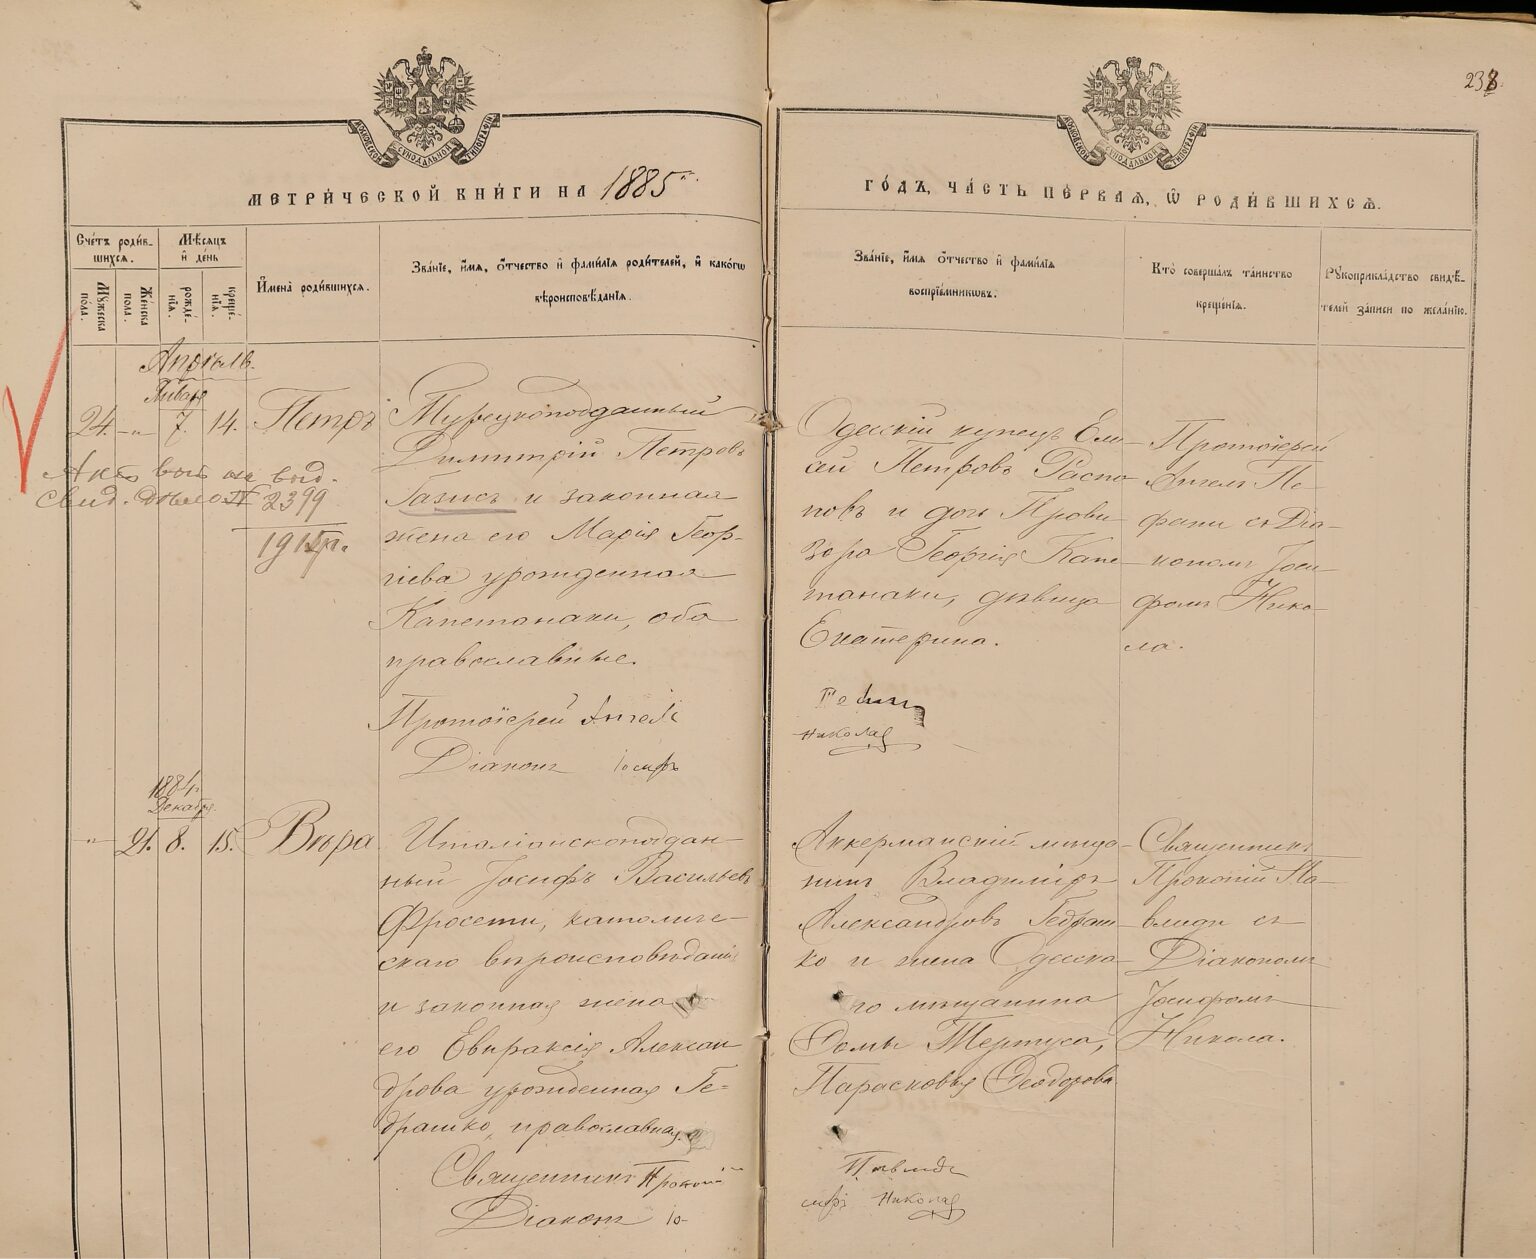 238.
МОСКОВСКОЙ СѴНОДАЛЬНОЙ ТИПОГРАФІИ
МОСКОВСКОЙ СѴНОДАЛЬНОЙ ТИПОГРАФІИ
МЕТРИ́ЧЕСКОЙ КНИ́ГИ НА 1885
ГО́ДЪ, ЧА́СТЬ ПЕ́РВАѦ, Ѡ҆ РОДИ́ВШИХСѦ.
Сче́тъ роди́в-
шихсѧ.
Мꙋ́жеска пола.
Же́нска пола.
Мѣ́сѧцъ
и҆ де́нь
рожде́-
нїѧ.
креще́-
нїѧ.
И҆мена̀ роди́вшихсѧ.
Зва́нїе, и҆́мѧ, ѻ҆́тчество и҆ фами́лїѧ роди́телей, и҆ како́гѡ
вѣроисповѣ́данїѧ.
Зва́нїе, и҆́мѧ ѻ҆́тчество и҆ фами́лїѧ
воспрїе́мникѡвъ.
Кто̀ соверша́лъ та́инство
креще́нїѧ.
Рꙋкоприкла́дство свидѣ́-
телей за́писи по жела́нїю.
Апрѣль.
Января
24. -„- 7. 14. Петръ
Турецкоподданный
Димитрій Петровъ
Газисъ и законная
жена его Марія Геор-
гіева урожденная
Капетанаки, оба
православные.
Протоіерей Ангелъ
Діаконъ Іосифъ
выд.
Свид. 2399
Одесскій купецъ Ели-
сей Петровъ Распо-
повъ и дочь Прови-
зора Георгія Капе-
танаки, дѣвица
Екатерина.
Протоіерей
Ангелъ Пе-
фани съ Діа-
кономъ Іоси-
фомъ Нико-
ла.
Никола
1884 г.
Декабря.
-„- 21. 8. 15. Вѣра
Италіанскоподдан-
ный Іосифъ Васильевъ
Фросети, католиче-
скаго вѣроисповѣданія
и законная жена
его Евпраксія Алексан-
дрова урожденная Ге-
драшко, православная.
Священникъ Прокопій
Діаконъ Іо-
Аккерманскій мѣща-
нинъ Владиміръ
Александровъ Гедраш-
ко и жена Одесска-
го мѣщанина
Ѳомы Тертуса,
Парасковья Ѳеодорова
Священникъ
Прокопій Па-
влиди съ
Діакономъ
Іосифомъ
Никола.
Павлиди
сифъ Никола